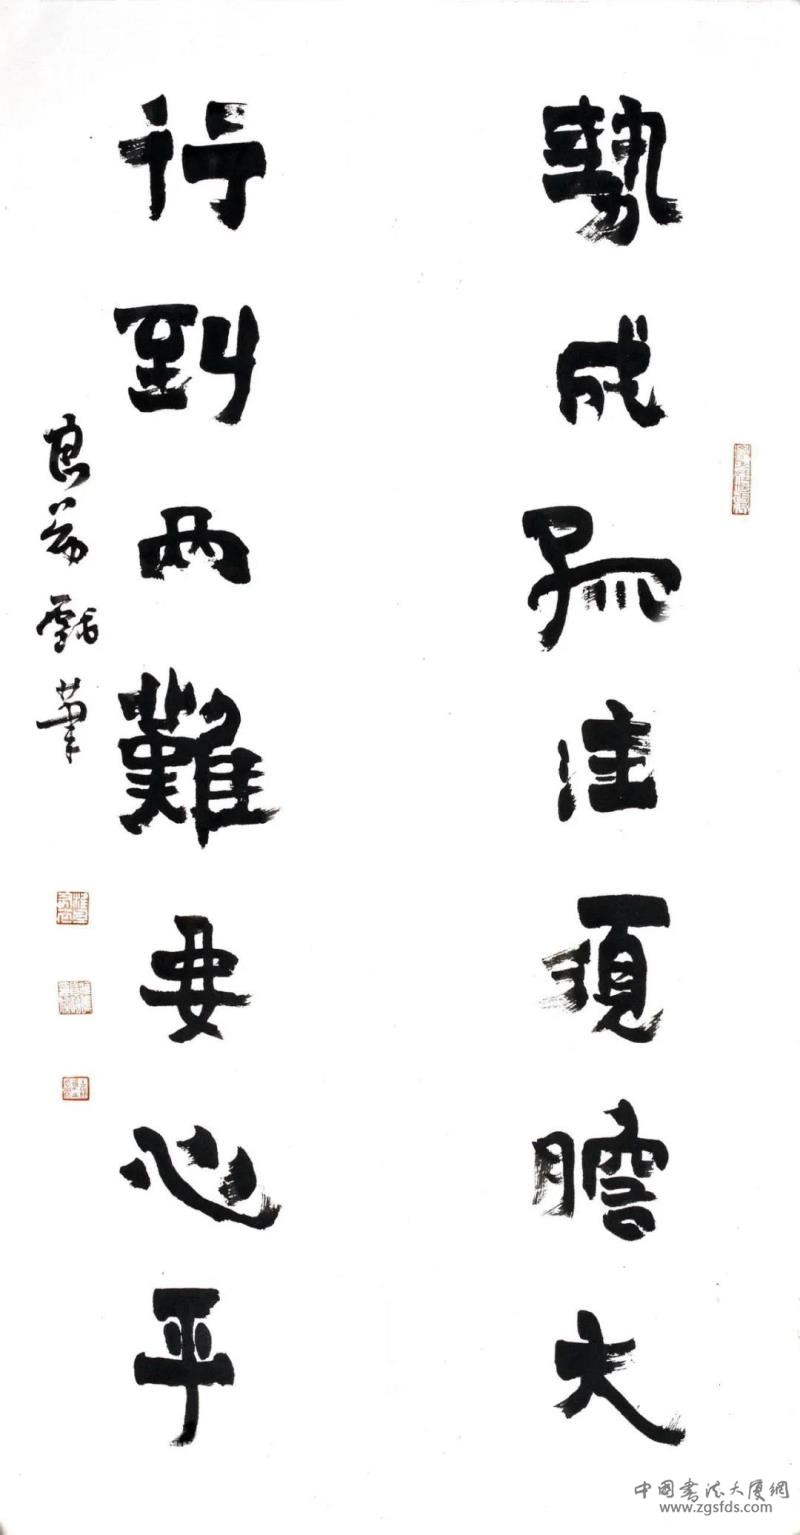 勢成孤注須膽大
行到兩難要心平
良翁戲筆
中国書法大厦網
www.zgsfds.com